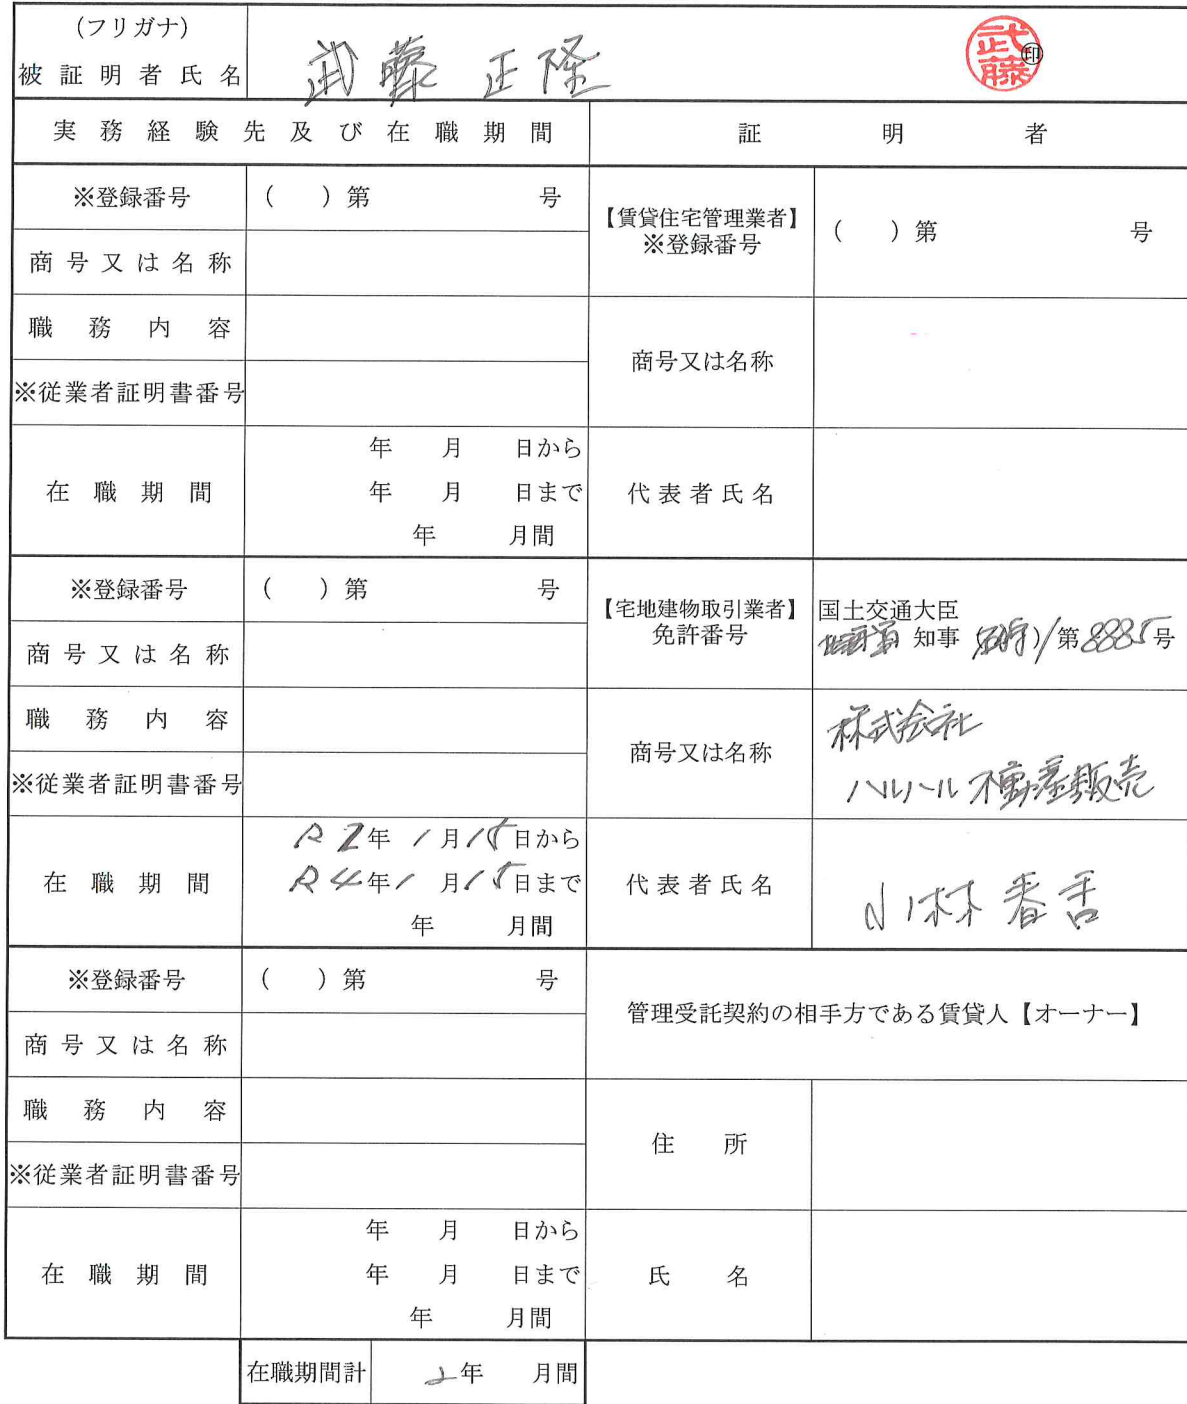 (フリガナ)
被証明者氏名 武藤 正隆 武藤 ㊞
実務経験先及び在職期間 証明者
※登録番号 ( )第 号 【賃貸住宅管理業者】※登録番号 ( )第 号
商号又は名称
職務内容 商号又は名称
※従業者証明書番号
在職期間 年 月 日から
年 月 日まで 代表者氏名
年 月間
※登録番号 ( )第 号 【宅地建物取引業者】免許番号 国土交通大臣
知事 )第8885号
商号又は名称
職務内容 商号又は名称 株式会社
ハルハル不動産販売
※従業者証明書番号
在職期間 R2年1月15日から
R4年1月15日まで 代表者氏名 小林
年 月間
※登録番号 ( )第 号 管理受託契約の相手方である賃貸人【オーナー】
商号又は名称
職務内容 住所
※従業者証明書番号
在職期間 年 月 日から
年 月 日まで 氏名
年 月間
在職期間計 2年 月間